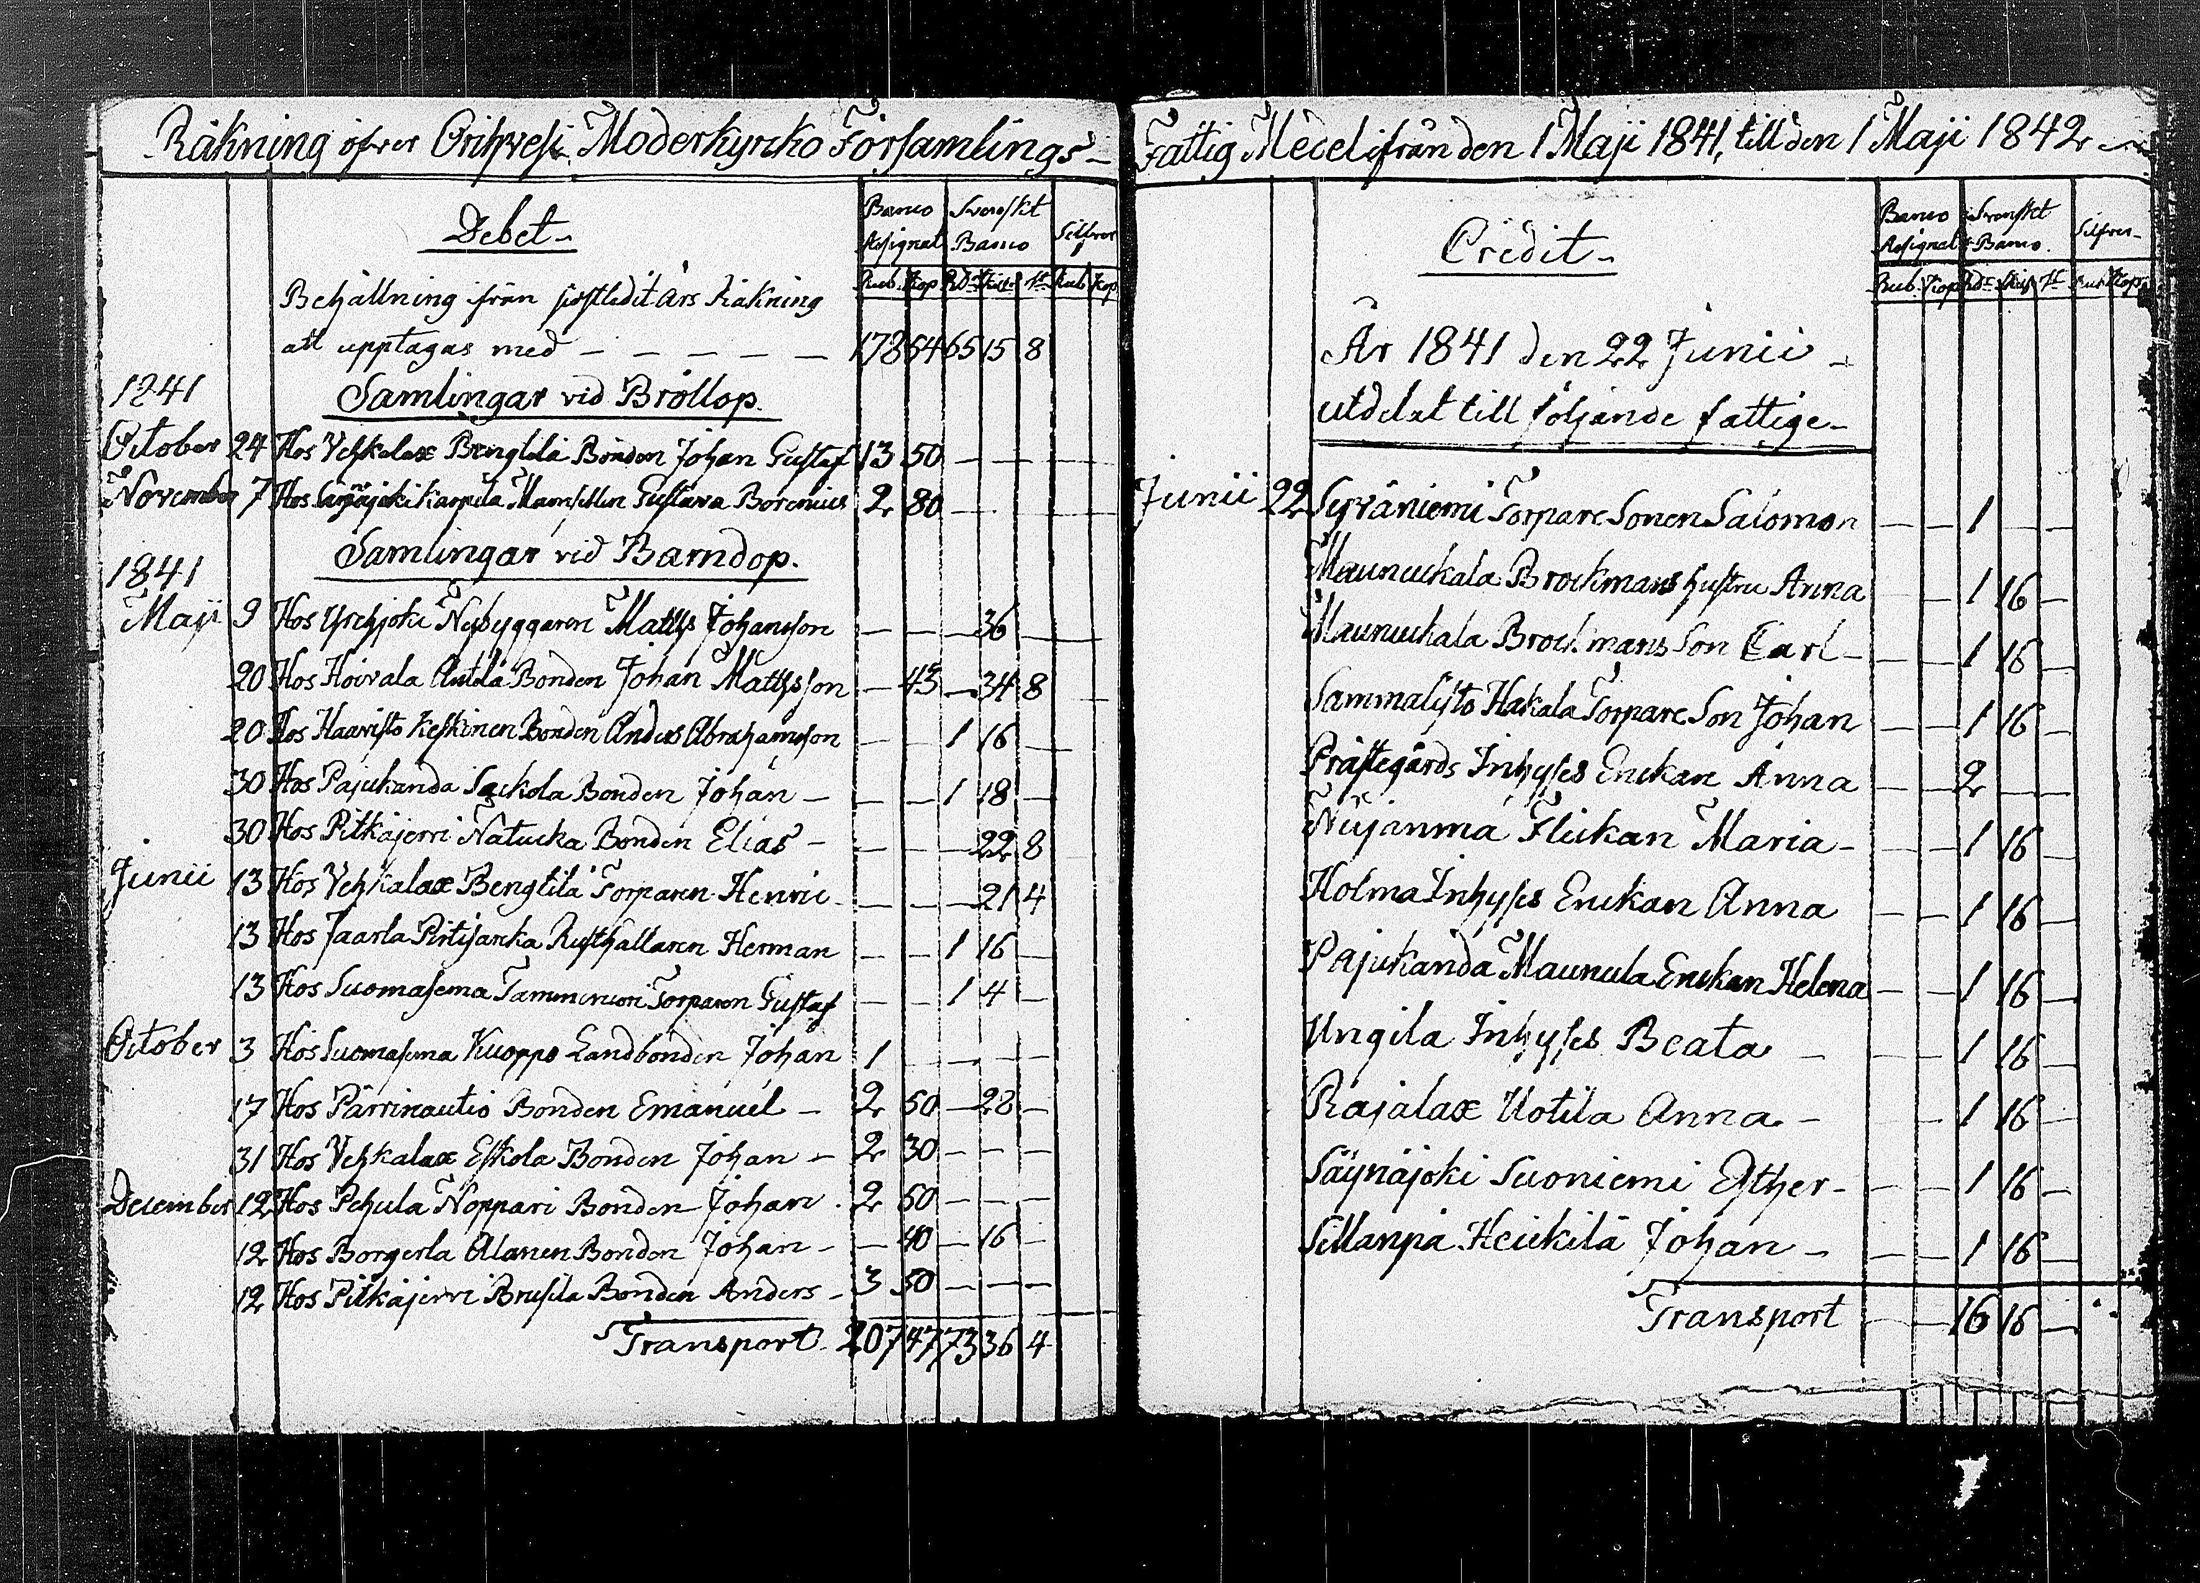 Räkning öfver Orihvesi Moderkyrcko Församlings-
Debet-
Banco Assignat
Svenskt Banco
Silfver
Rub. Kop Rd. Skill. rst Rub Kop
Behållning ifrån sistledit års Räkning
att upptagas med - - - - - 178 64 65 15 8
1841 Samlingar vid Bröllop.
October 24 Hos Vehkalax Bengtilä Bonden Johan Gustaf 13 50 - - -
November 7 Hos Säynäjoki Karpila Mamsellen Gustava Borenius 2 80 - - -
Samlingar vid Barndop.
1841
Maji 9 Hos Nybyggaren Matths Johansson - - - 36 -
20 Hos Hoivala Anttila Bonden Johan Mathsson - 43 - 34 8
20 Hos Haavisto Keskinen Bonden Anders Abrahamsson - - 1 16 -
30 Hos Pajukanda Sackola Bonden Johan - - - 1 18 -
30 Hos Pitkäjervi Natucka Bonden Elias - - - - 22 8
Junii 13 Hos Vehkalax Bengtilä Torparen Henric - - - - 21 4
13 Hos Jaarla Pirtijaska Rusthållaren Herman - - 1 16 -
13 Hos Suomasema Tamminiemi Torparen Gustaf - - 1 4 -
October 3 Hos Suomasema Kuoppo Landbonden Johan 1 - - - -
17 Hos Pärrinautio Bonden Emanuel - 2 50 - 28 -
31 Hos Vehkalax Eskola Bonden Johan - 2 30 - - -
December 12 Hos Pehula Noppari Bonden Johan 2 50 - - -
12 Hos Borgerla Alanen Bonden Johan - - 40 - 16 -
12 Hos Pitkäjervi Brusila Bonden Anders - 3 50 - - -
Transport 207 47 73 36 4
Fattig Medel ifrån den 1 Maji 1841, till den 1 Maji 1842
Credit-
Banco Assignat
Svenskt Banco.
Silfver-
Rub. Kop Rdr Skill rst Rub Kop
År 1841 den 22 Junii -
utdelat till följande fattige-
Junii 22 Syväniemi Torpare Sonen Salomon - - 1
Maunuckala Brockmans hustru Anna - - 1 16 -
Maunuckala Brockmans Son Carl - - - 1 16 -
Sammalisto Hakala Torpare Son Johan - - 1 16 -
Prästegårds Inhyses Enckan Anna - - 2 - -
Nujanma Flickan Maria - - - 1 16 -
Holma Inhyses Enckan Anna - - 1 16 -
Pajukanda Maunula Enckan Helena - - 1 16 -
Ungila Inhyses Beata - - - 1 16 -
Rajalax Uotila Anna - - - 1 16 -
Säynäjoki Suoniemi Esther - - - 1 16 -
Sillanpä Heickilä Johan - - - 1 16 -
Transport - - 16 16 -